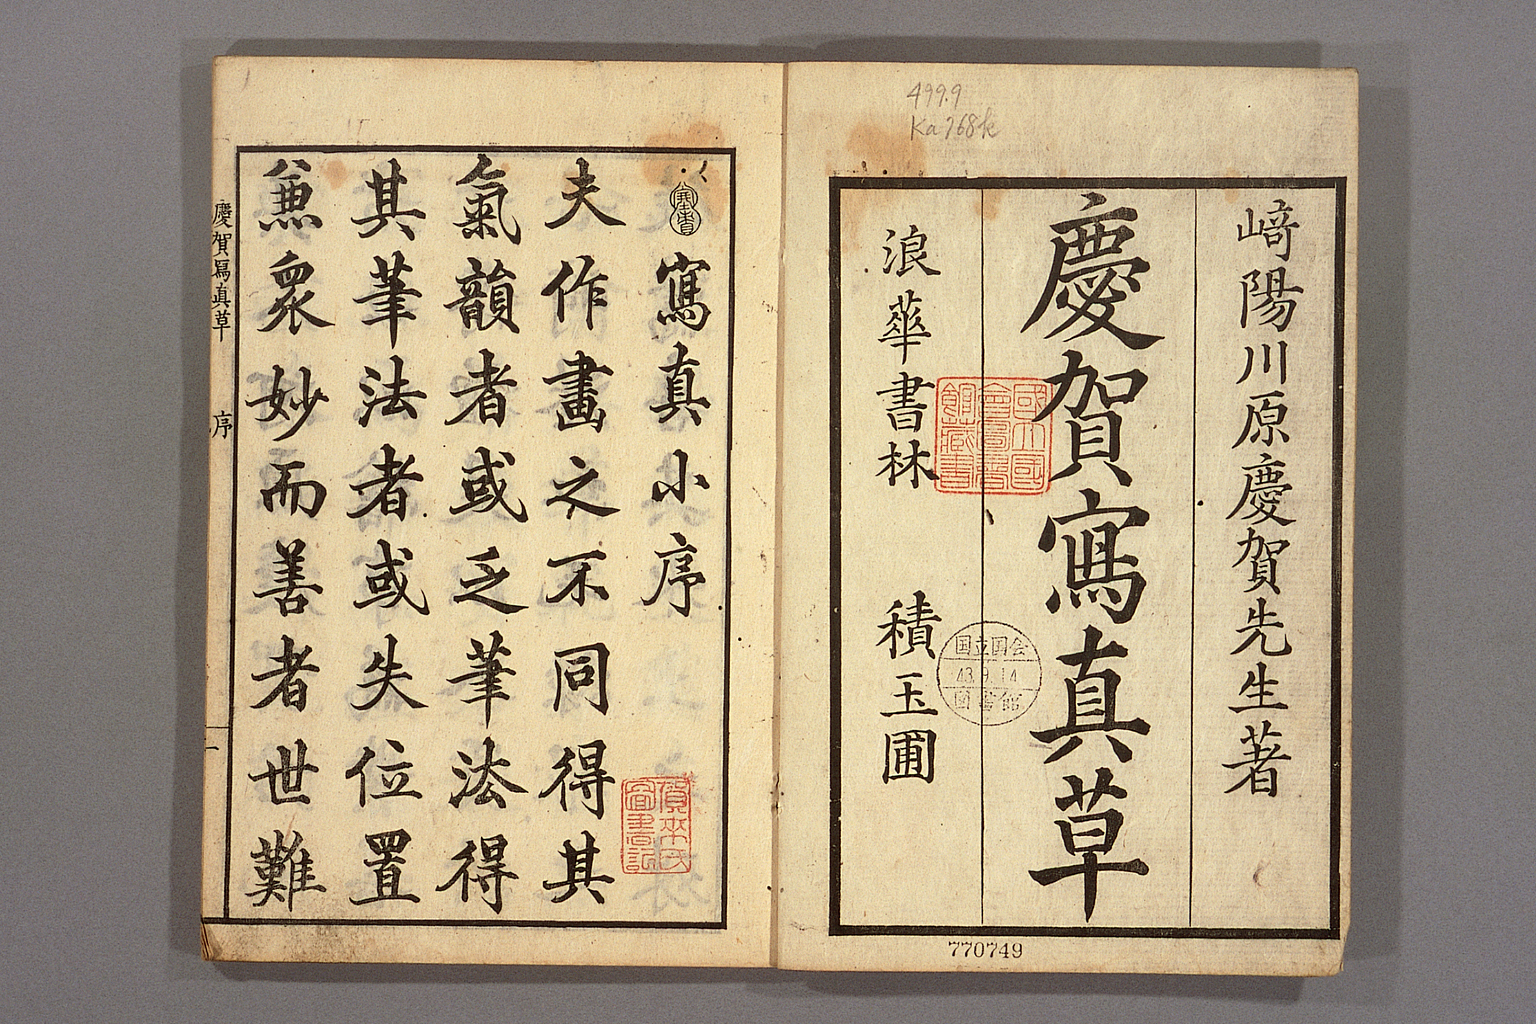 499.9
Ka768k
﨑陽川原慶賀先生著
慶賀寫真草
浪華書林 積玉圃
國立國
會圖書
館藏書
国立国会
43.9.14
図書館
770749
寫真小序
夫作畫之不同得其
氣韻者或乏筆法得
其筆法者或失位置
兼衆妙而善者世難
慶賀寫真草 序 一